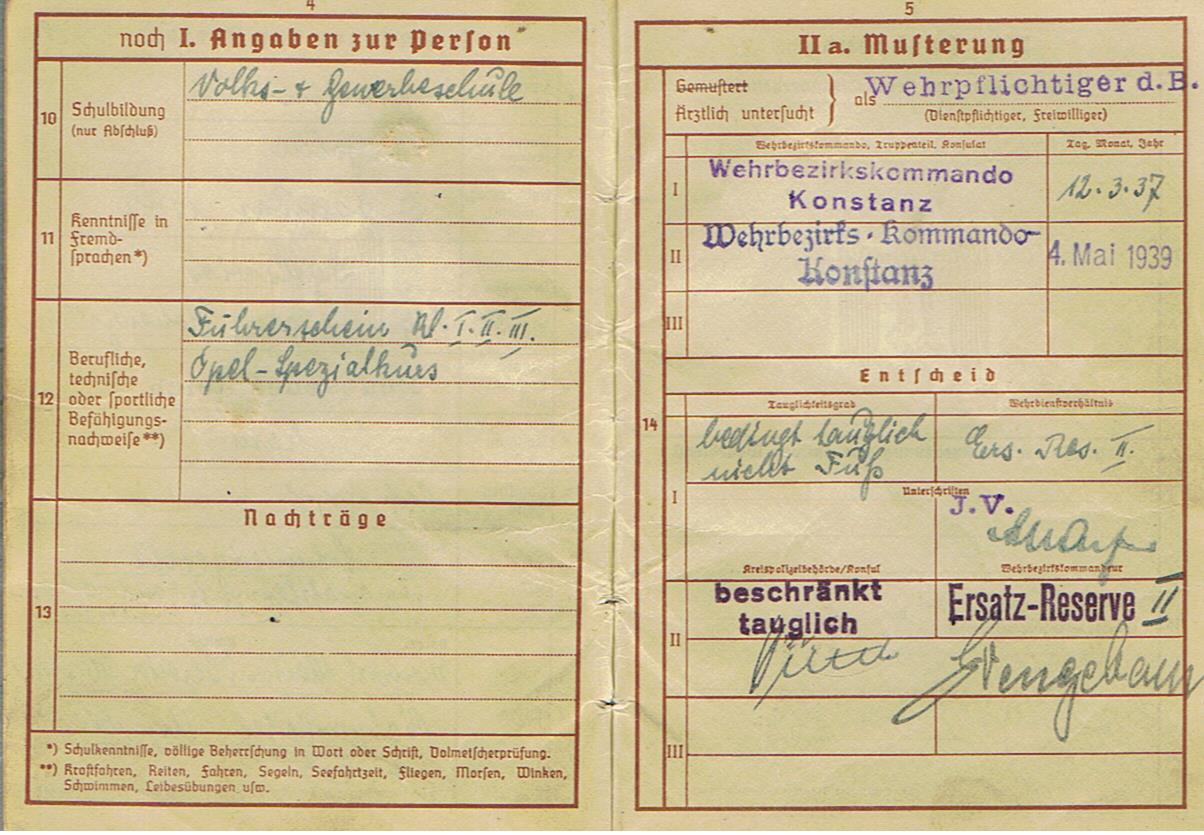 4
noch I. Angaben zur Person
10
Schulbildung
(nur Abschluß)
Volks- + Gewerbeschule
11
Kenntnisse in
Fremd-
sprachen*)
12
Berufliche,
technische
oder sportliche
Befähigungs-
nachweise**)
Führerschein Kl. I. II. III.
Opel-Spezialkurs
Nachträge
13
*) Schulkenntnisse, völlige Beherrschung in Wort oder Schrift, Dolmetscherprüfung.
**) Kraftfahren, Reiten, Fahren, Segeln, Seefahrtzeit, Fliegen, Morsen, Winken,
Schwimmen, Leibesübungen usw.
5
II a. Musterung
Gemustert
Ärztlich untersucht
als Wehrpflichtiger d.B.
(Dienstpflichtiger, Freiwilliger)
Wehrbezirkskommando, Truppenteil, Konsulat
Tag, Monat, Jahr
I
Wehrbezirkskommando
Konstanz
12.3.37
II
Wehrbezirks-Kommando
Konstanz
4. Mai 1939
III
Entscheid
14
Tauglichkeitsgrad
Wehrdienstverhältnis
I
bedingt tauglich
nicht Fuß
Ers. Res. II.
Unterschriften
J.V.
Kreispolizeibehörde/Konsul
Wehrbezirkskommandeur
II
beschränkt
tauglich
Ersatz-Reserve II
III